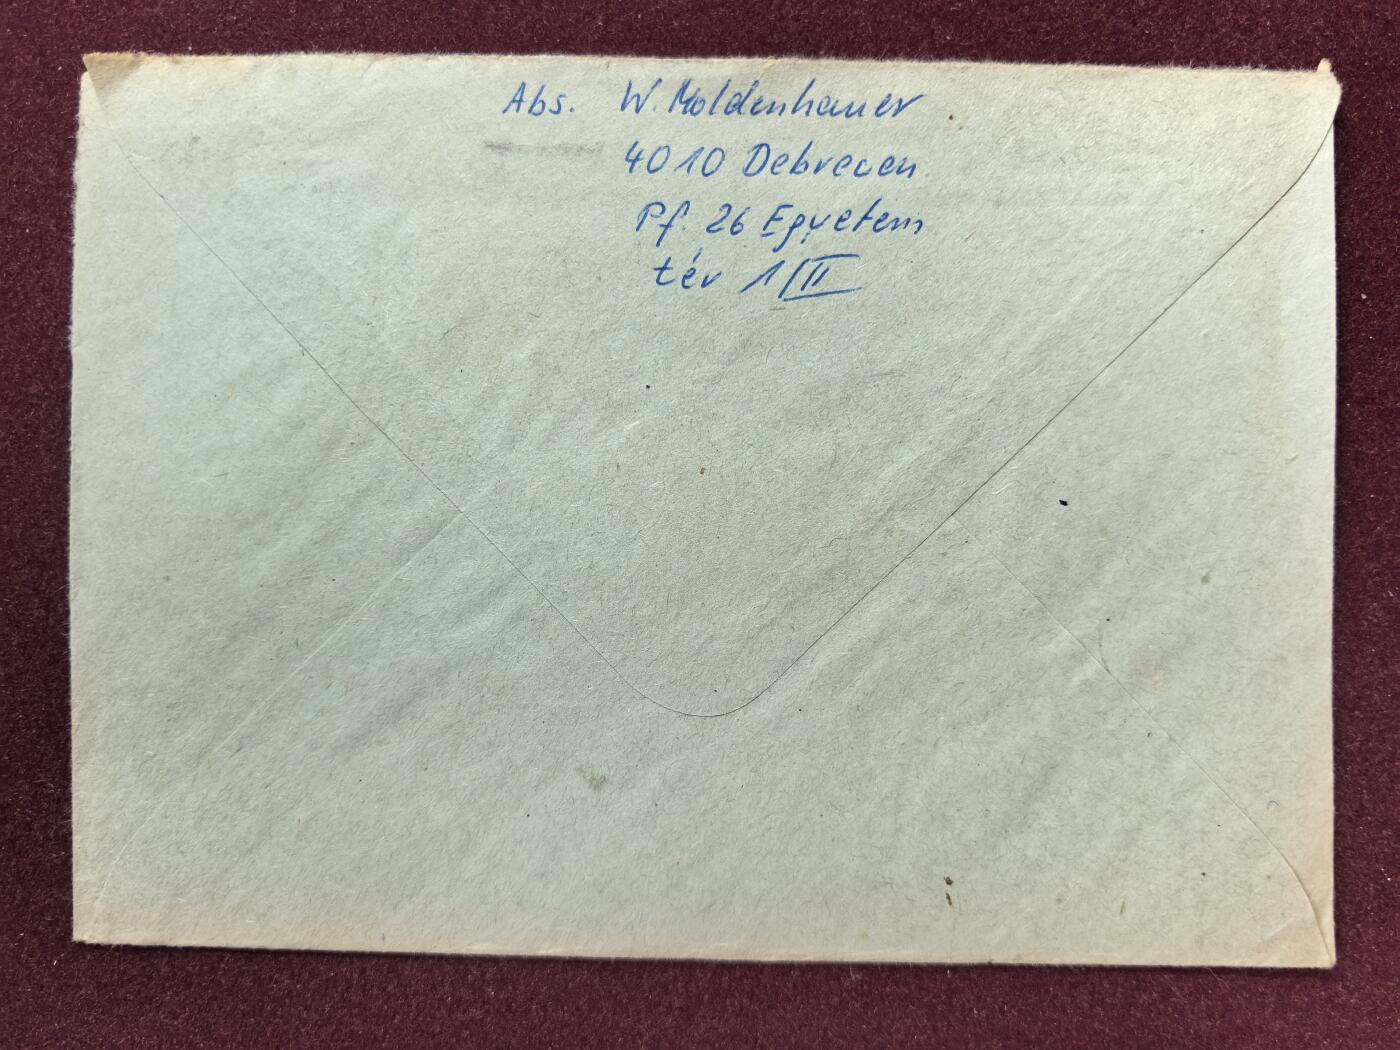 Abs. W. Moldenhauer
4010 Debrecen
Pf. 26 Egyetem
tér 1/II